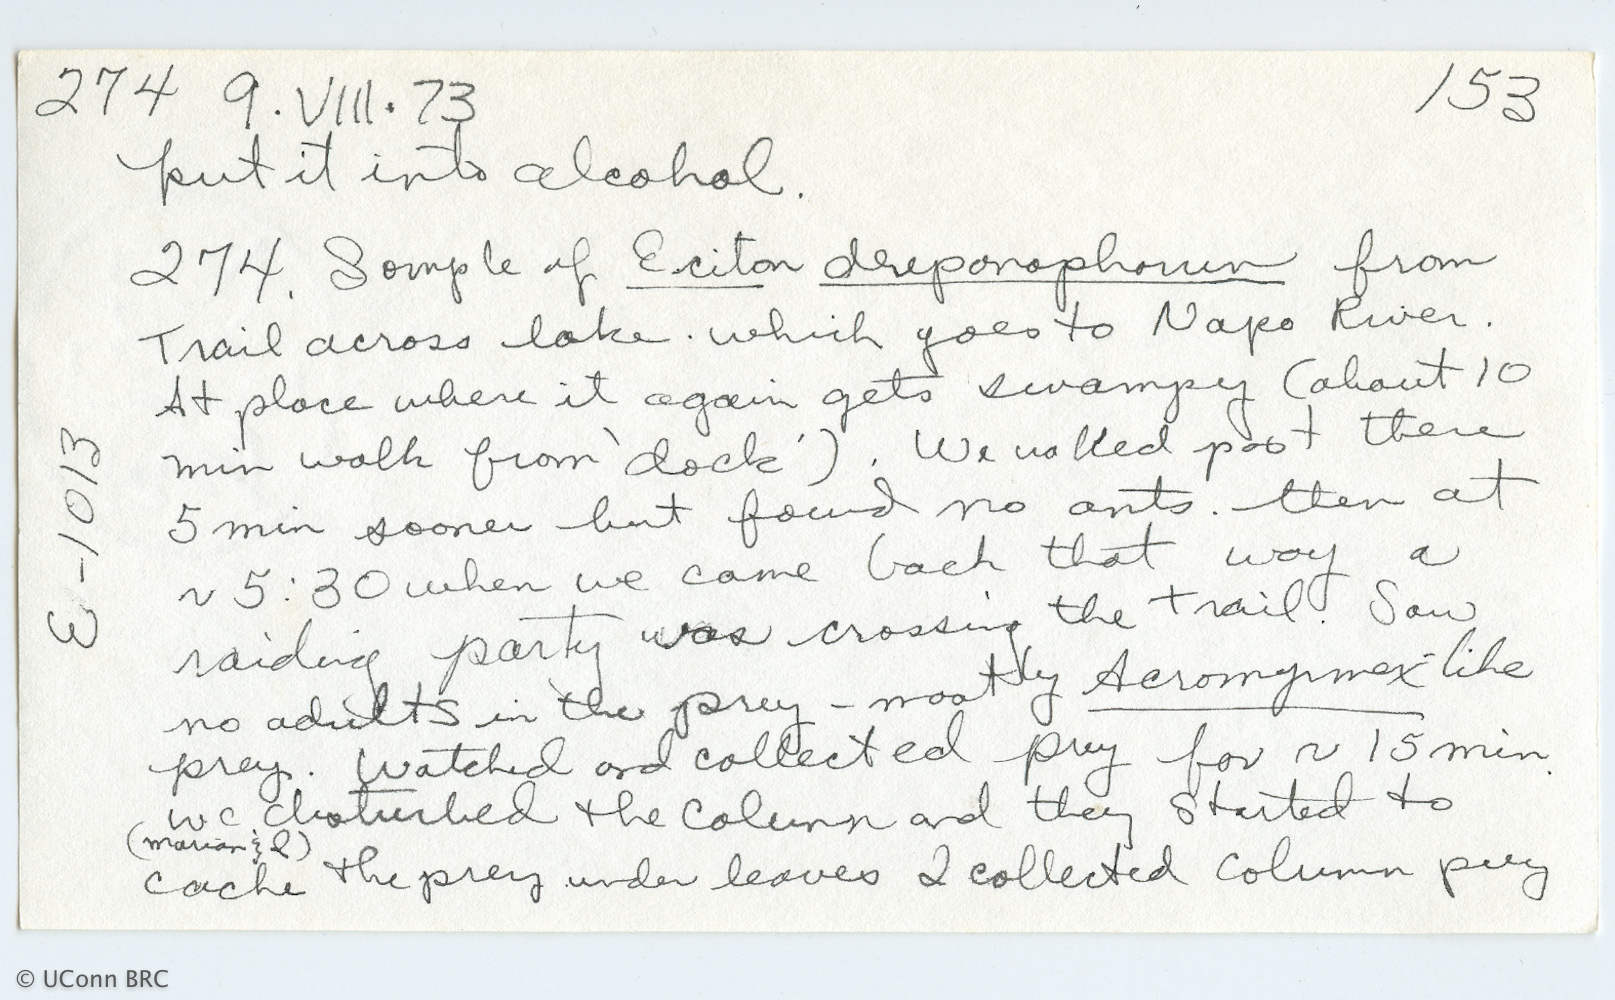 274 9.VIII.73 153
put it into alcohol.
274. Sample of Eciton drepanophorum from
Trail across lake. which goes to Napo River.
At place where it again gets swampy (about 10
min walk from 'dock'). We walked past there
5 min sooner but found no ants. then at
~ 5:30 when we came back that way a
raiding party was crossing the trail. Saw
no adults in the prey - mostly Acromyrmex-like
prey. Watched and collected prey for ~ 15 min.
we disturbed the column and they started to
(marian & I)
cache the prey under leaves I collected column prey
E-1013
© UConn BRC